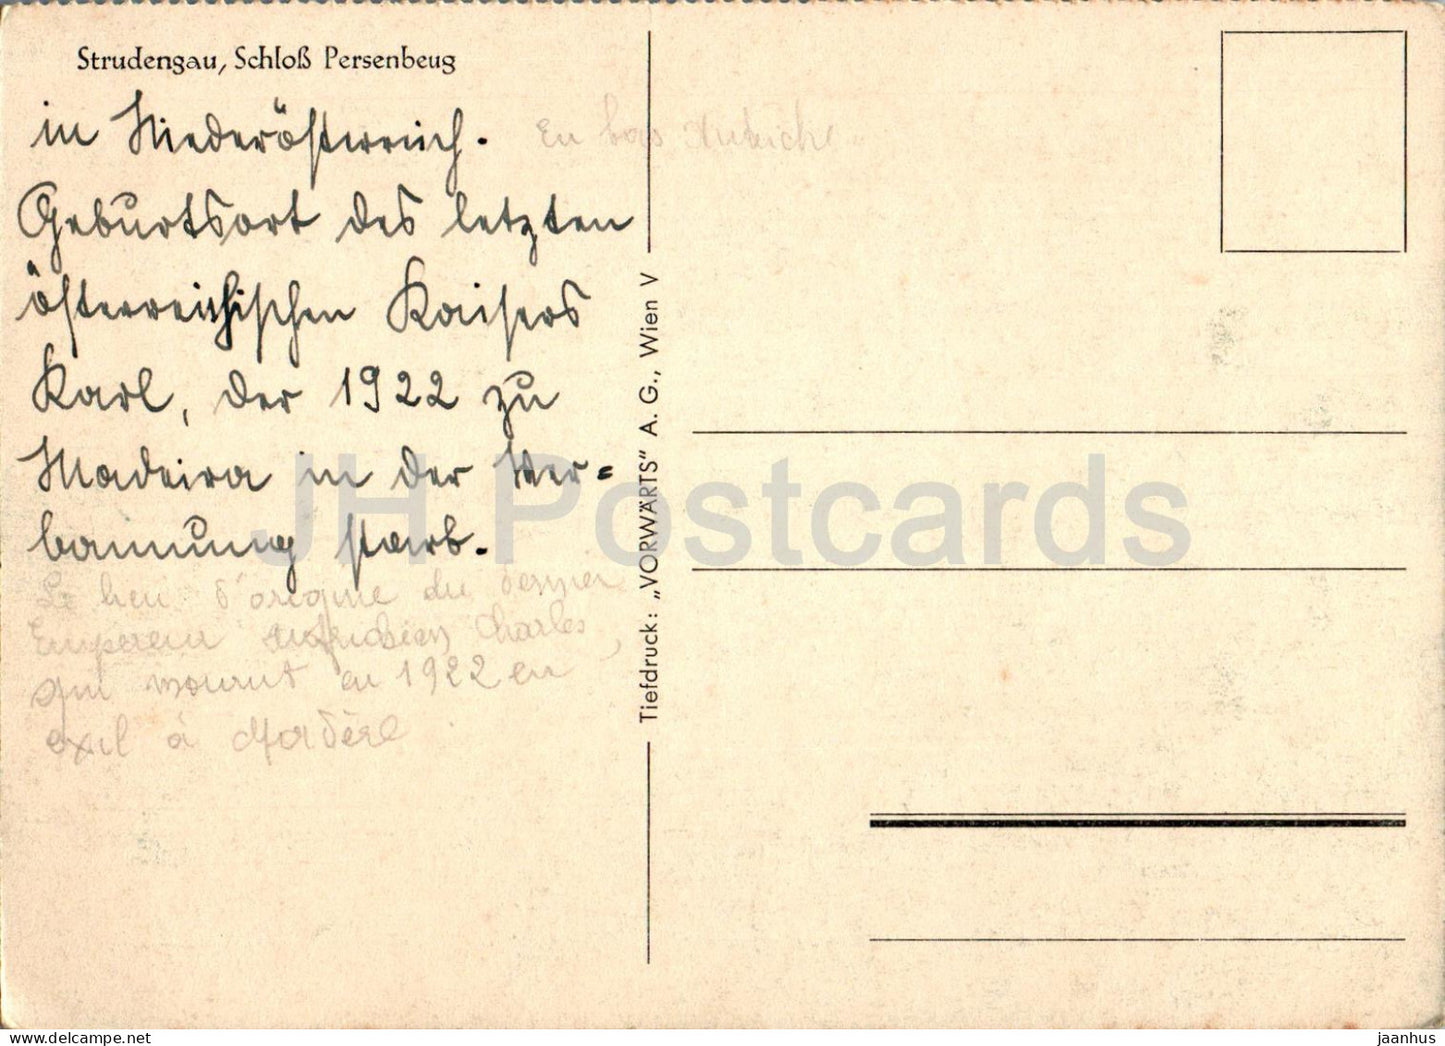 Strudengau, Schloß Persenbeug
in Niederösterreich.
En bas Autriche
Geburtsort des letzten
österreichischen Kaisers
Karl, der 1922 zu
Madeira in der Ver=
bannung starb.
Le lieu d'origine du dernier
Empereur Autrichien Charles,
qui mourut en 1922 en
exil à Madère
Tiefdruck: „VORWÄRTS" A. G., Wien V
JH Postcards
jaanhus